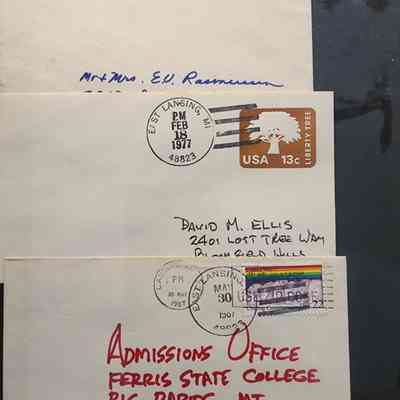 Mr + Mrs. E.U. Rasmussen
EAST LANSING, MI
PM
FEB
18
1977
48823
USA 13c
LIBERTY TREE
DAVID M. ELLIS
2401 LOST TREE WAY
BLOOMFIELD HILLS
PM
1987
EAST LANSING
MAY
30
1987
48823
ADMISSIONS OFFICE
FERRIS STATE COLLEGE
BIG RAPIDS, MI